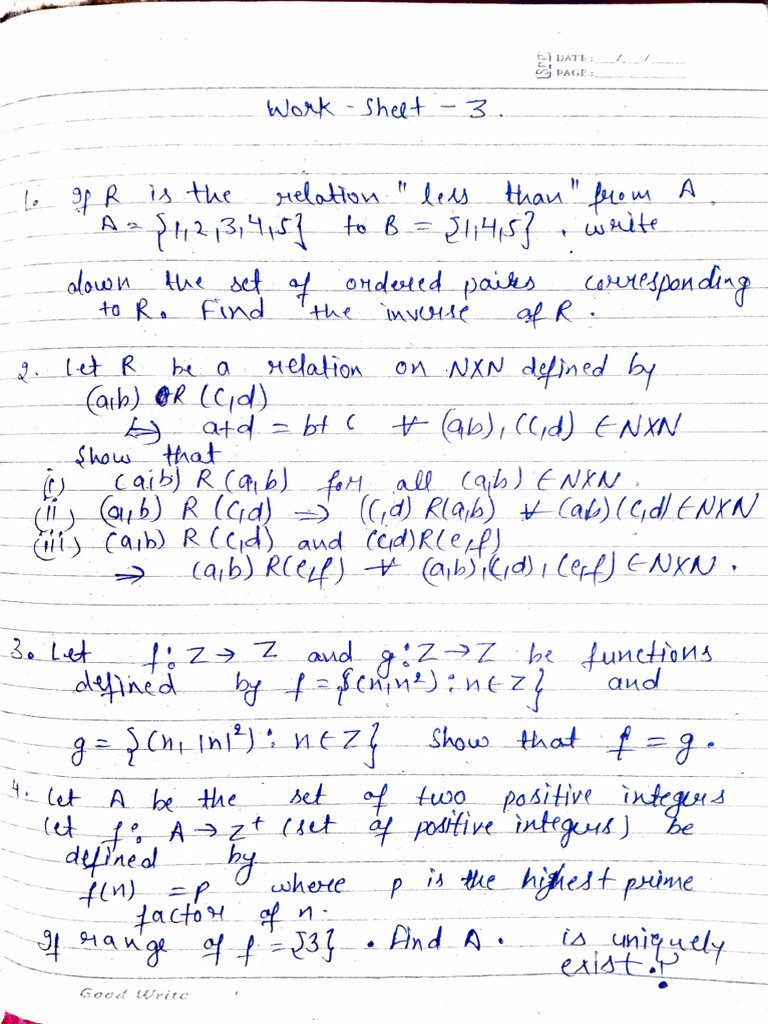 DATE: __/__/____
PAGE:
Work - Sheet - 3.
1. If R is the relation "less than" from A.
A = {1,2,3,4,5} to B = {1,4,5}. write
down the set of ordered pairs corresponding
to R. Find the inverse of R.
2. Let R be a relation on N×N defined by
(a,b) R (c,d)
⇔ a+d = b+c ∀ (a,b), (c,d) ∈ N×N
Show that
(i) (a,b) R (a,b) for all (a,b) ∈ N×N.
(ii) (a,b) R (c,d) ⇒ (c,d) R(a,b) ∀ (a,b) (c,d) ∈ N×N
(iii) (a,b) R (c,d) and (c,d) R(e,f)
⇒ (a,b) R(e,f) ∀ (a,b), (c,d), (e,f) ∈ N×N.
3. Let f: Z → Z and g: Z → Z be functions
defined by f = {(n,n²) : n ∈ Z} and
g = {(n, |n|²) : n ∈ Z} Show that f = g.
4. Let A be the set of two positive integers
let f: A → Z⁺ (set of positive integers) be
defined by
f(n) = p where p is the highest prime
factor of n.
If range of f = {3}. Find A. is uniquely
exist.?
Good Write